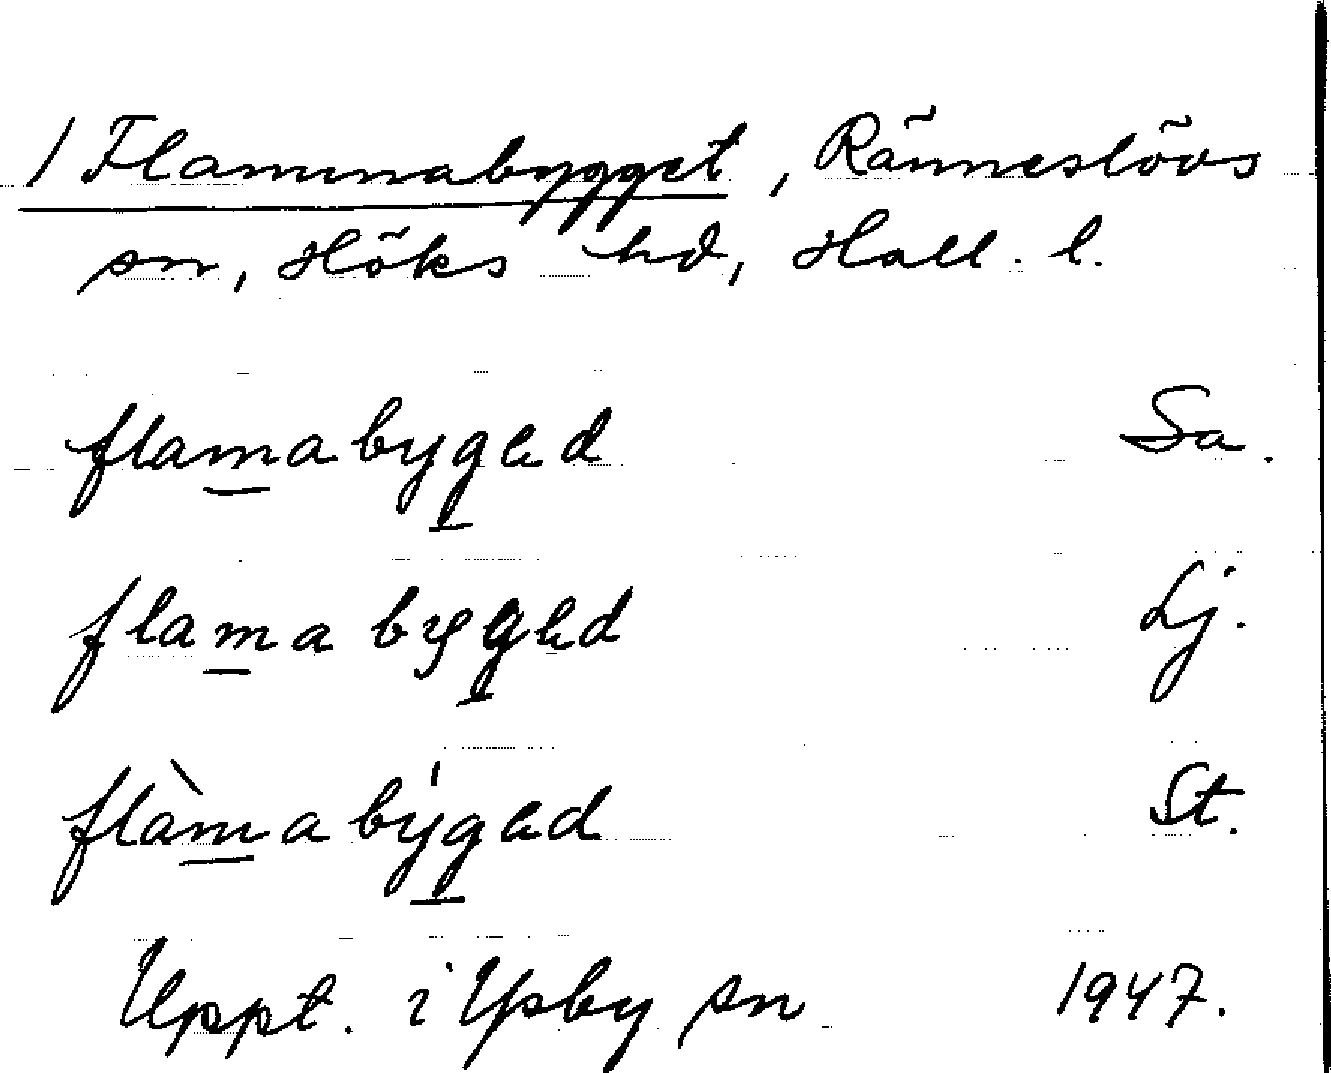 / Flammabygget, Ränneslövs
sn, Höks hd, Hall. l.
flam̲abyg̲ed Sa.
flam̲abyg̲ed Lj.
flàm̲abýg̲ed St.
Uppt. i Ysby sn 1947.